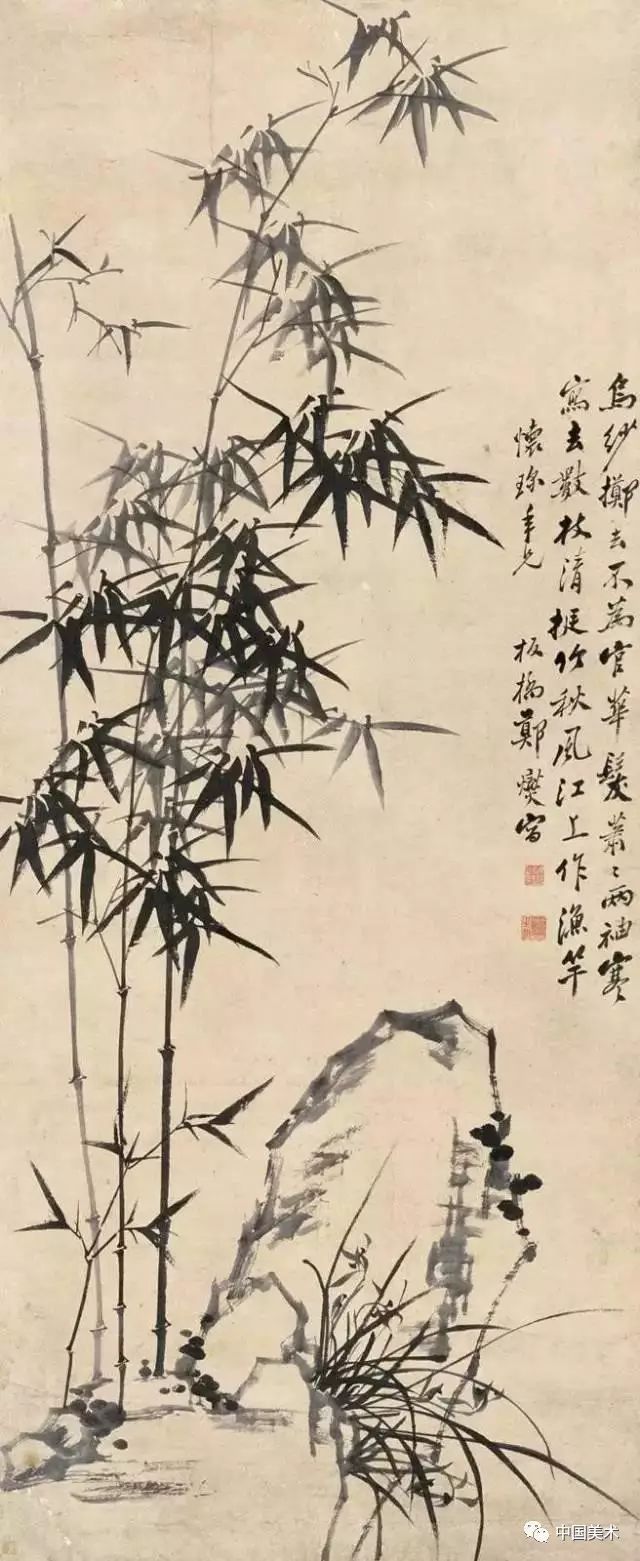 烏紗擲去不為官華髮蕭〻兩袖寒
寫去數枝清挺竹秋風江上作漁竿
懷年兄
板橋鄭燮寫
中国美术